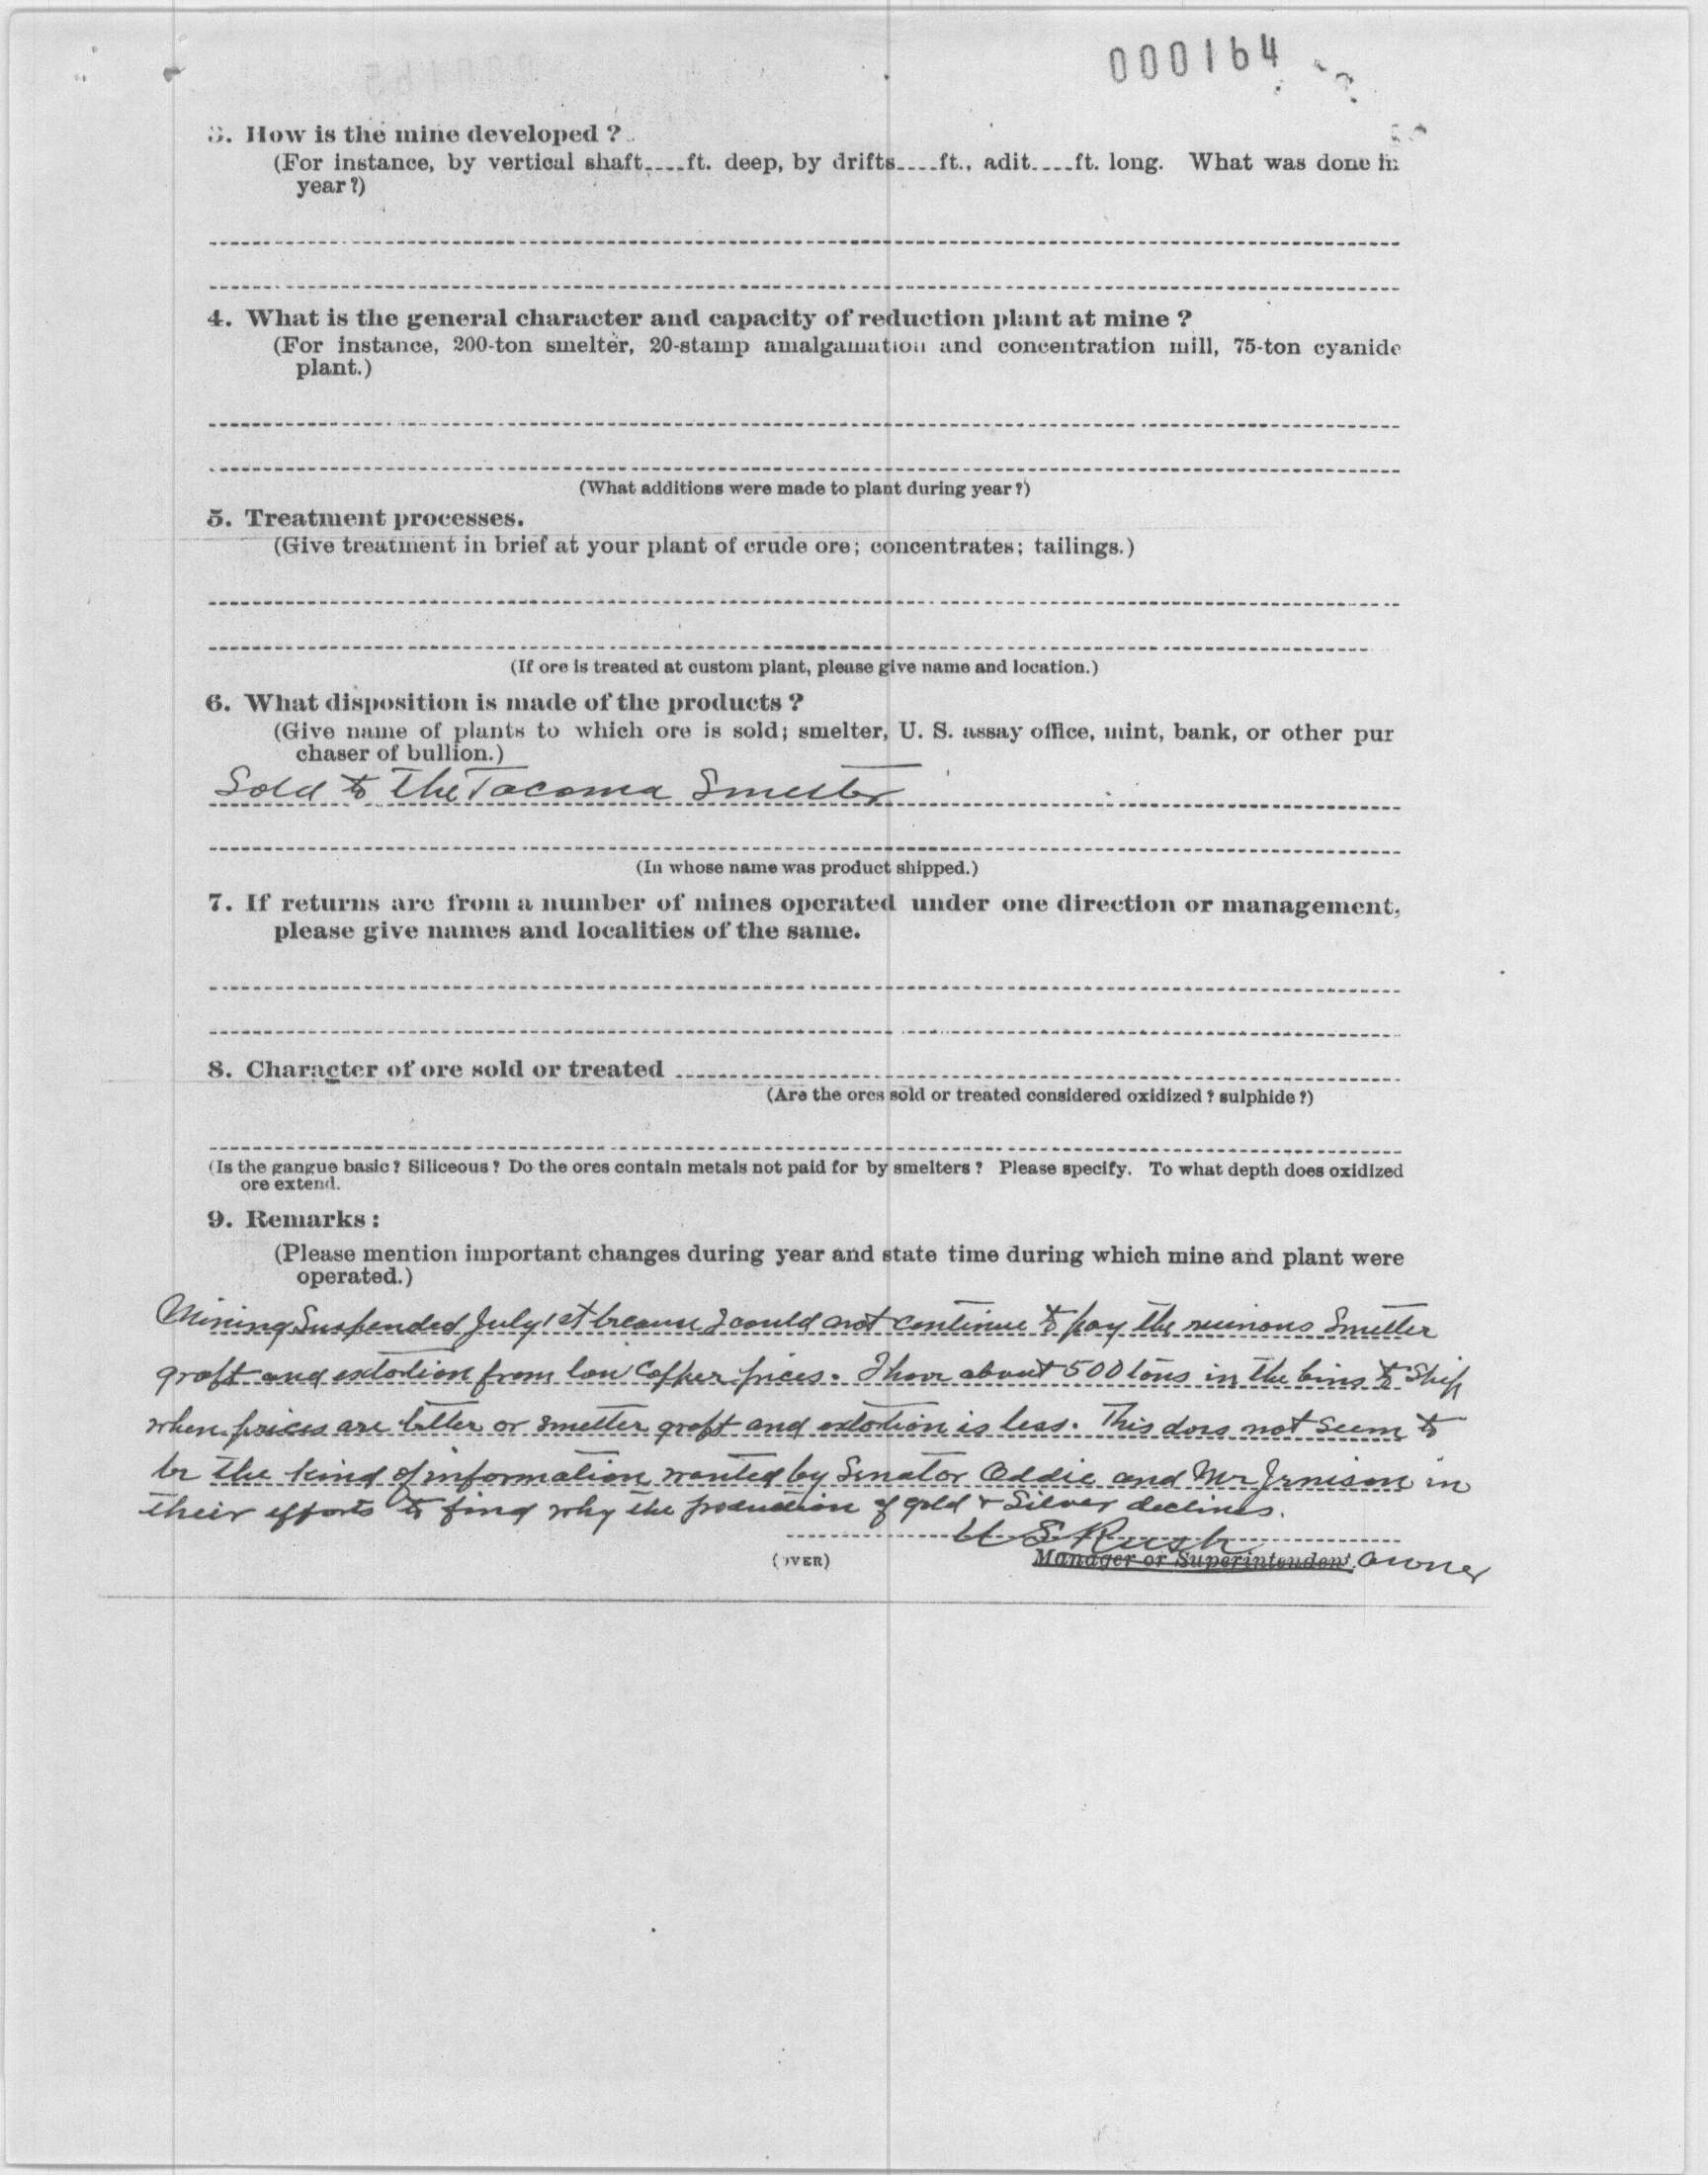 000164
3. How is the mine developed ?
(For instance, by vertical shaft....ft. deep, by drifts....ft., adit....ft. long. What was done in
year ?)
4. What is the general character and capacity of reduction plant at mine ?
(For instance, 200-ton smelter, 20-stamp amalgamation and concentration mill, 75-ton cyanide
plant.)
(What additions were made to plant during year ?)
5. Treatment processes.
(Give treatment in brief at your plant of crude ore; concentrates; tailings.)
(If ore is treated at custom plant, please give name and location.)
6. What disposition is made of the products ?
(Give name of plants to which ore is sold; smelter, U. S. assay office, mint, bank, or other pur
chaser of bullion.)
Sold to The Tacoma Smelter
(In whose name was product shipped.)
7. If returns are from a number of mines operated under one direction or management,
please give names and localities of the same.
8. Character of ore sold or treated
(Are the ores sold or treated considered oxidized ? sulphide ?)
(Is the gangue basic ? Siliceous ? Do the ores contain metals not paid for by smelters ? Please specify. To what depth does oxidized
ore extend.
9. Remarks :
(Please mention important changes during year and state time during which mine and plant were
operated.)
Mining Suspended July 1st because I could not continue to pay the ruinous Smelter
graft and extortion from low Copper prices. I have about 500 tons in the bins to Ship
when prices are better or smelter graft and extortion is less. This does not seem to
be the kind of information wanted by Senator Oddie and Mr in
their efforts to find why the production of gold & Silver declines.
U S Rush
(OVER) Manager or Superintendent. owner